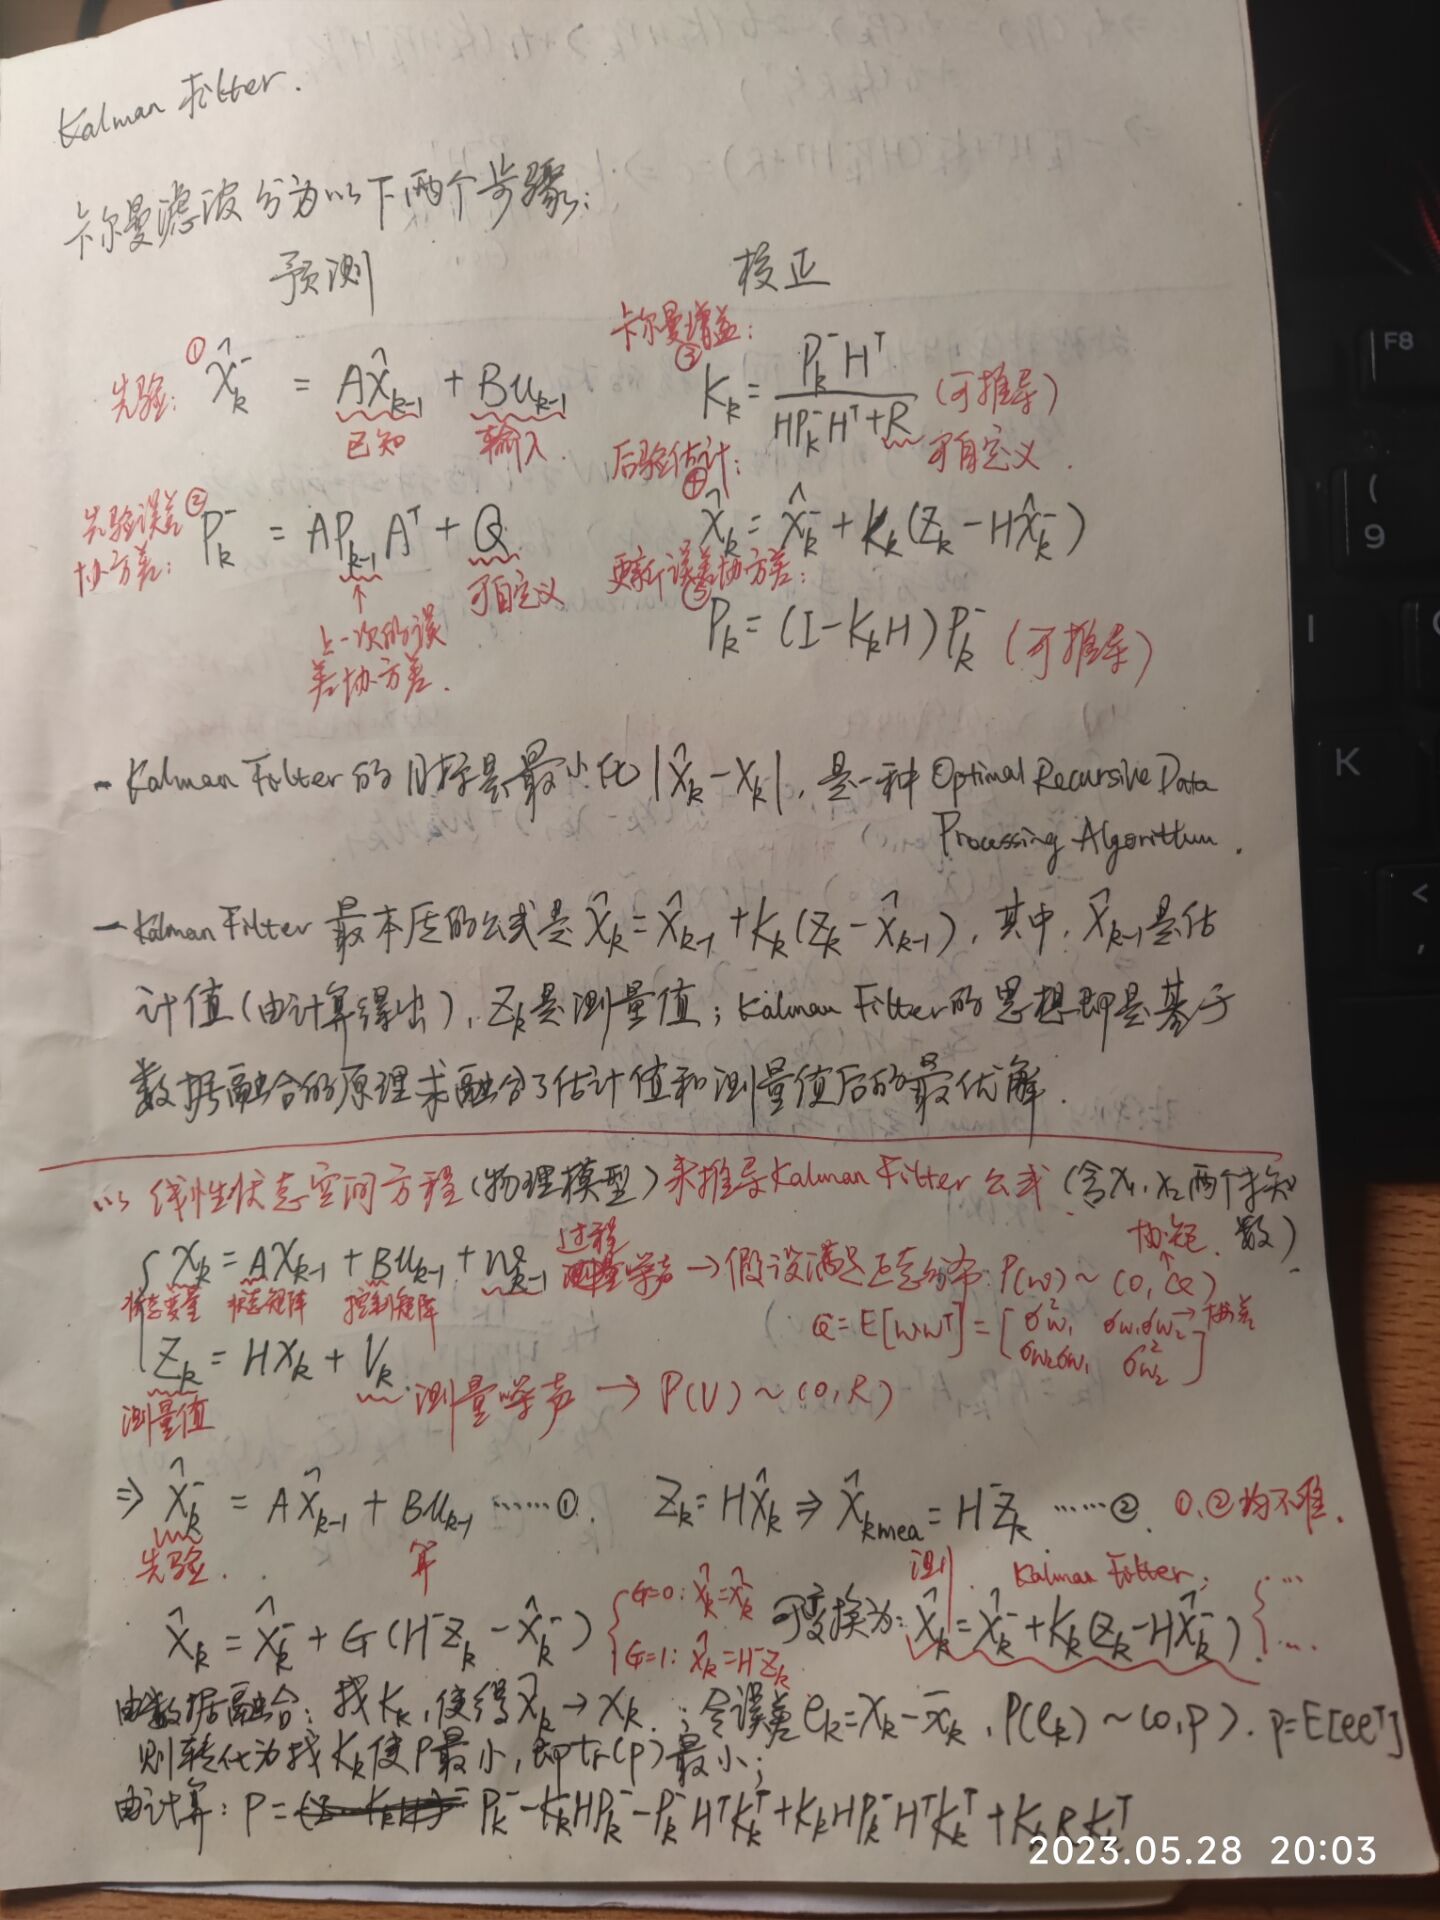 Kalman Filter.
卡尔曼滤波分为以下两个步骤:
预测 校正
先验: ① X̂ₖ⁻ = AX̂ₖ₋₁ + Buₖ₋₁
已知 输入.
卡尔曼增益:
③ Kₖ = Pₖ⁻Hᵀ / (HPₖ⁻Hᵀ+R) (可推导)
可自定义.
先验误差协方差: ② Pₖ⁻ = APₖ₋₁Aᵀ + Q
可自定义
↑
上一次的误
差协方差.
后验估计:
④ X̂ₖ = X̂ₖ⁻ + Kₖ(Zₖ - HX̂ₖ⁻)
更新误差协方差:
⑤ Pₖ = (I - KₖH)Pₖ⁻ (可推导)
- Kalman Filter 的目标是最小化 |X̂ₖ - Xₖ|, 是一种 Optimal Recursive Data
Processing Algorithm.
- Kalman Filter 最本质的公式是 X̂ₖ = X̂ₖ₋₁ + Kₖ(Zₖ - X̂ₖ₋₁), 其中, X̂ₖ₋₁是估
计值(由计算得出), Zₖ是测量值; Kalman Filter的思想即是基于
数据融合的原理求融合了估计值和测量值后的最优解.
以线性状态空间方程(物理模型)来推导Kalman Filter公式 (含x₁, x₂两个未知
数)
{ Xₖ = AXₖ₋₁ + Buₖ₋₁ + wₖ₋₁ 过程噪声 → 假设满足正态分布: P(w) ~ (0, Q)
状态变量 状态矩阵 控制矩阵
Q = E[wwᵀ] = [σ²w₁ σw₁σw₂ → 协方差
σw₂σw₁ σ²w₂]
Zₖ = HXₖ + Vₖ. 测量噪声 → P(V) ~ (0, R)
测量值
⇒ X̂ₖ⁻ = AX̂ₖ₋₁ + Buₖ₋₁ ……①. Zₖ = HX̂ₖ ⇒ X̂ₖmea = H⁻Zₖ ……②. ①、②均不准.
先验. 算 测.
Kalman Filter:
X̂ₖ = X̂ₖ⁻ + G(H⁻Zₖ - X̂ₖ⁻) { G=0: X̂ₖ = X̂ₖ⁻ 可变换为: X̂ₖ = X̂ₖ⁻ + Kₖ(Zₖ - HX̂ₖ⁻). { ...
G=1: X̂ₖ = H⁻Zₖ ...
由数据融合: 找Kₖ, 使得X̂ₖ → Xₖ. ; 令误差 eₖ = Xₖ - x̄ₖ, P(eₖ) ~ (0, P). P = E[eeᵀ]
则转化为找Kₖ使P最小, 即tr(P)最小;
由计算: P = Pₖ⁻ - KₖHPₖ⁻ - Pₖ⁻HᵀKₖᵀ + KₖHPₖ⁻HᵀKₖᵀ + KₖRKₖᵀ
2023.05.28 20:03